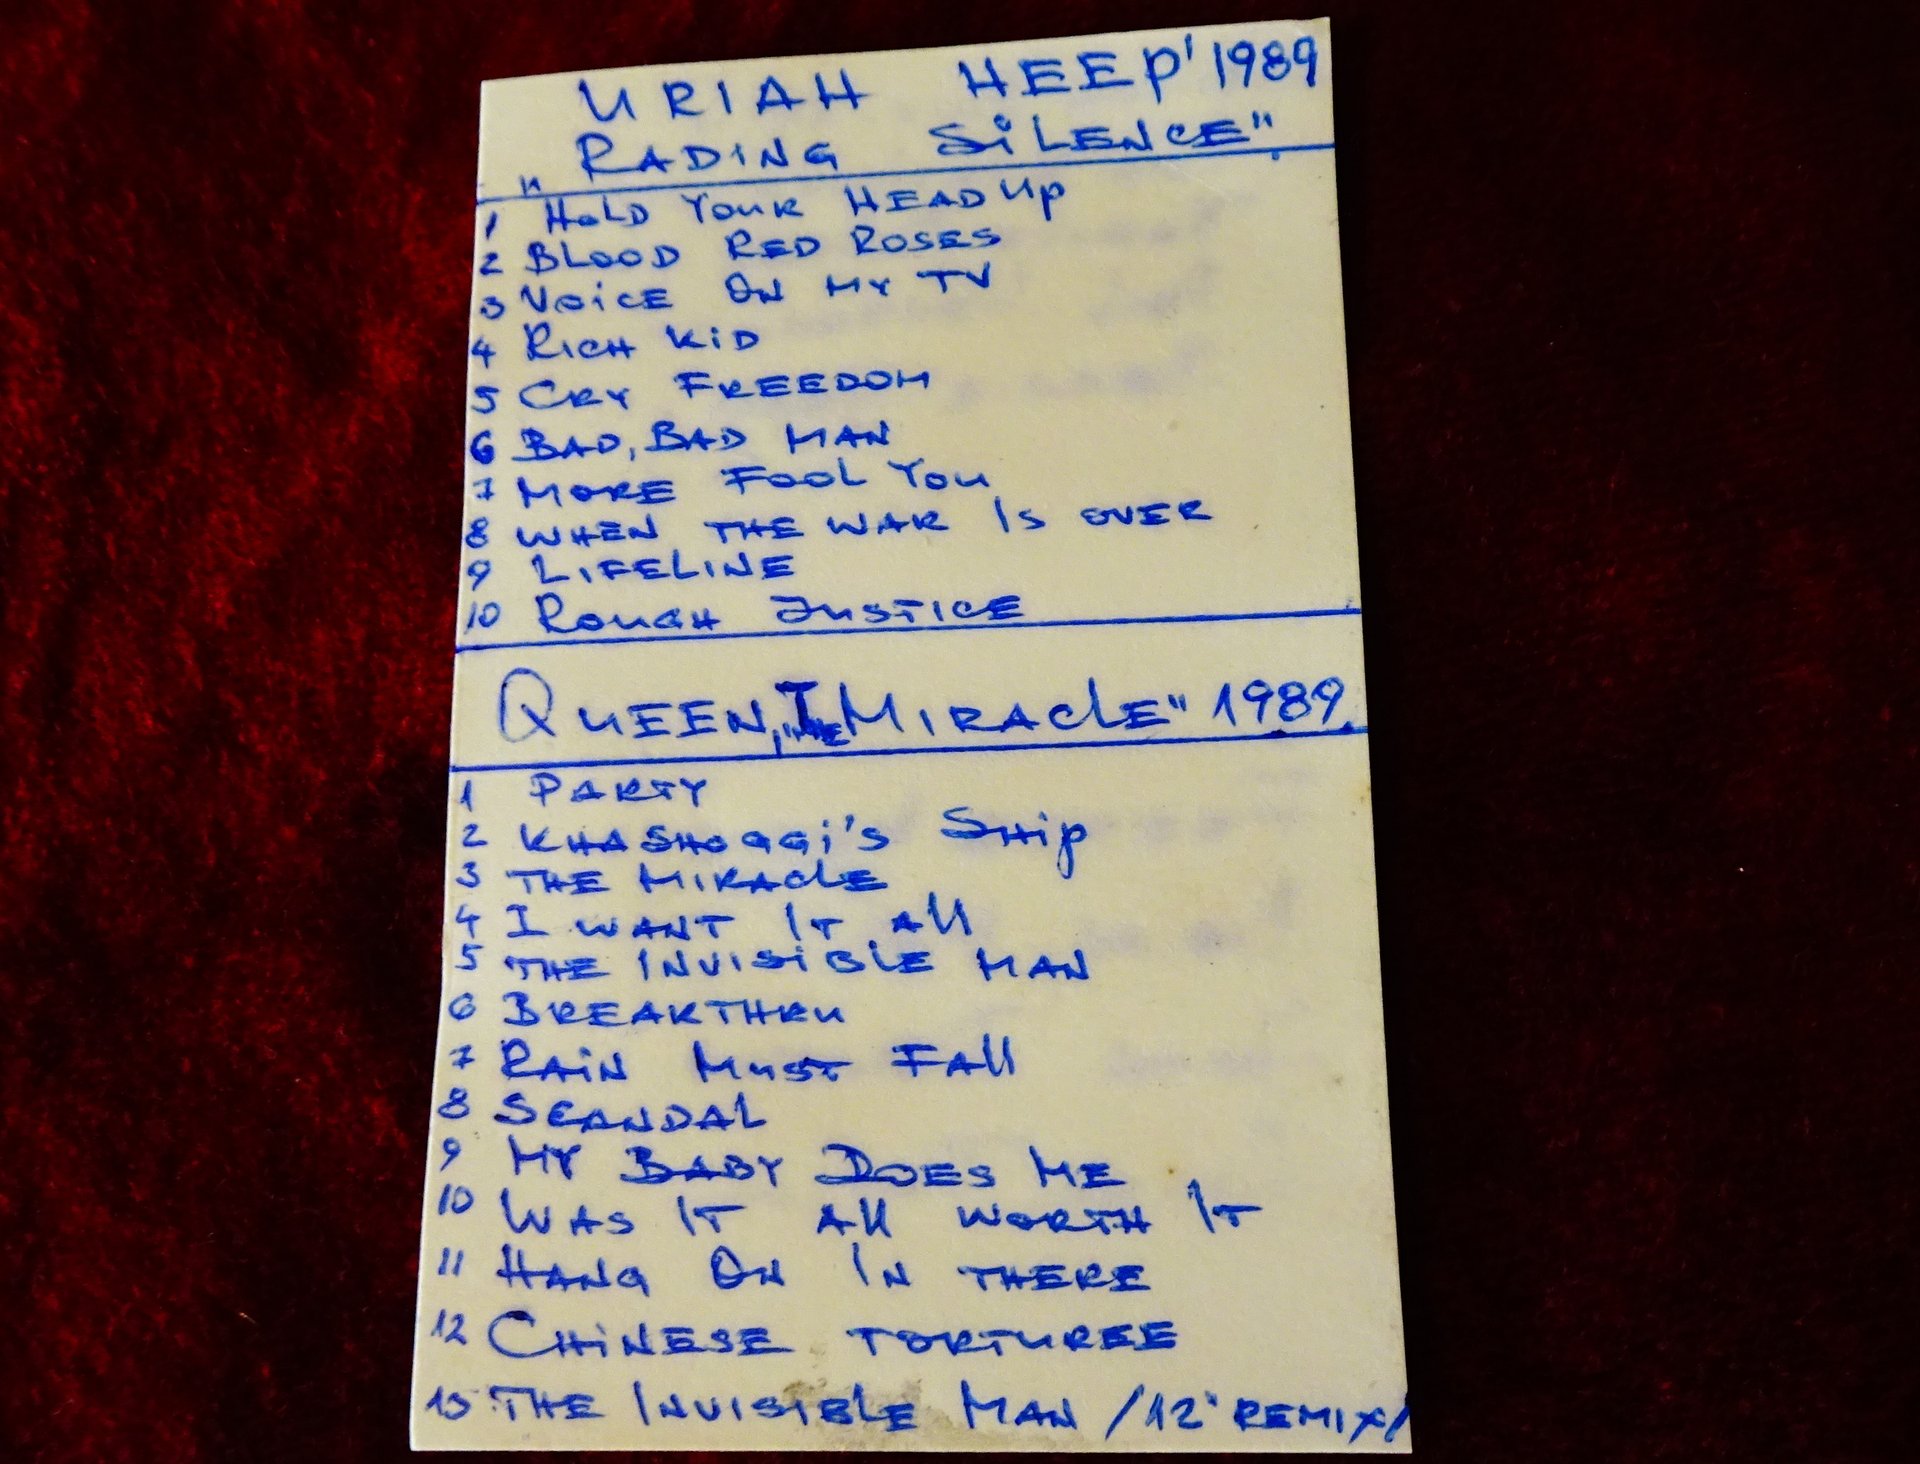 URIAH HEEP' 1989
„RADING SiLENCE"
1 HOLD YOUR HEAD Up
2 BLOOD RED ROSES
3 VOiCE ON MY TV
4 RICH KiD
5 CRY FREEDOM
6 BAD, BAD MAN
7 MORE FOOL YOU
8 WHEN THE WAR IS OVER
9 LIFELINE
10 ROUGH JUSTICE
QUEEN, „THE MIRAClE" 1989.
1 PARTY
2 KHASHOGGi'S SHip
3 THE MIRAClE
4 I WANT IT All
5 THE INVISiBLE MAN
6 BREAKTHRU
7 RAiN MUST FAll
8 SCANDAL
9 MY BABY DOES ME
10 WAS IT All WORTH IT
11 HANG ON IN THERE
12 CHiNESE TORTUREE
13 THE INVISIBLE MAN /12" REMIX/